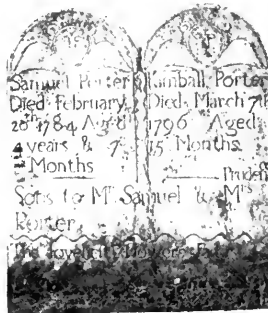 Samuel Porter
Died February
20th 1784 Aged
4 years & 7
Months
Kimball Porter
Died March 7th
1796 Aged
15 Months
Sons to Mr Samuel & Mrs
Prudence
Porter